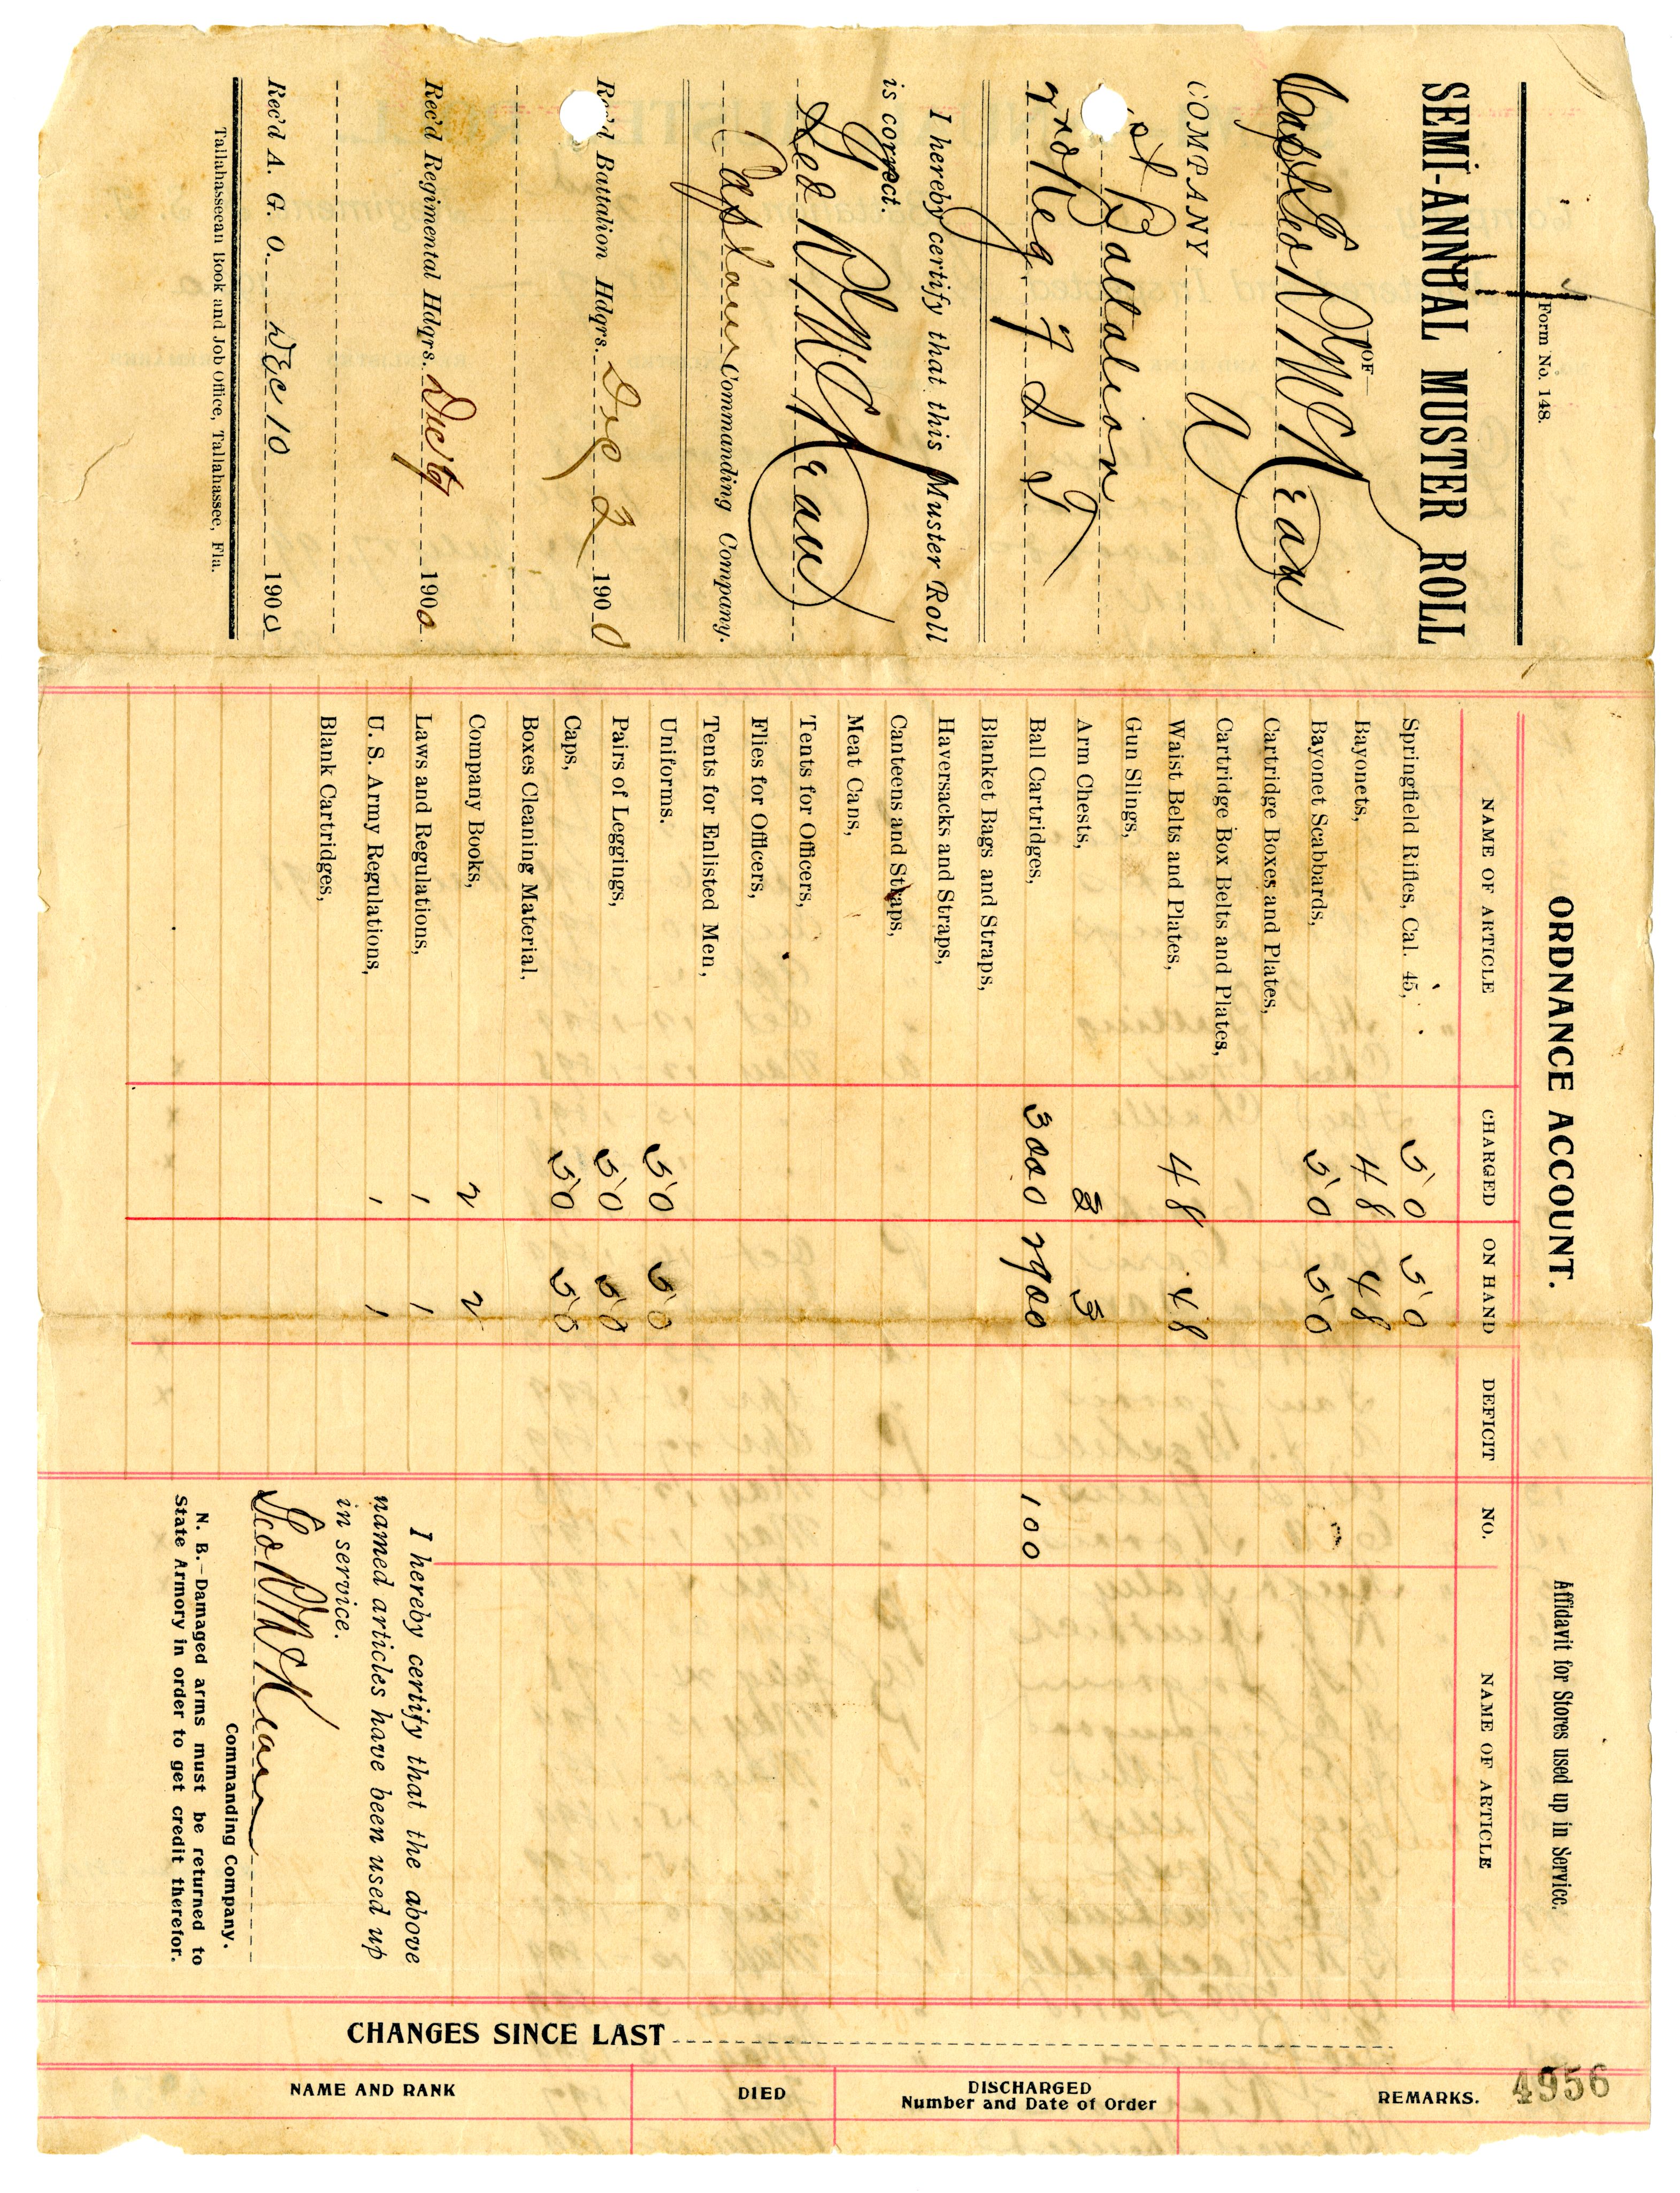 Form No. 148.
SEMI-ANNUAL MUSTER ROLL
OF
Capt Geo R McKean
COMPANY A
1st Battalion
2nd Reg F S T
I hereby certify that this Muster Roll
is correct.
Geo R McKean
Captain Commanding Company.
Rec'd Battalion Hdqrs. Dec 2 1900
Rec'd Regimental Hdqrs. Dec 1900
Rec'd A. G. O. DEC 10 1900
Tallahasseean Book and Job Office, Tallahassee, Fla.
ORDNANCE ACCOUNT.
NAME OF ARTICLE CHARGED ON HAND DEFICIT
Springfield Rifles, Cal. 45, 50 50
Bayonets, 48 48
Bayonet Scabbards, 50 50
Cartridge Boxes and Plates,
Cartridge Box Belts and Plates,
Waist Belts and Plates, 48 48
Gun Slings,
Arm Chests, 3 3
Ball Cartridges, 3000 2900
Blanket Bags and Straps,
Haversacks and Straps,
Canteens and Straps,
Meat Cans,
Tents for Officers,
Flies for Officers,
Tents for Enlisted Men,
Uniforms. 50 50
Pairs of Leggings, 50 50
Caps, 50 50
Boxes Cleaning Material,
Company Books, 2 2
Laws and Regulations, 1 1
U. S. Army Regulations, 1 1
Blank Cartridges,
Affidavit for Stores used up in Service.
NO. NAME OF ARTICLE
100
I hereby certify that the above
named articles have been used up
in service.
Geo R McKean
Commanding Company.
N. B.—Damaged arms must be returned to
State Armory in order to get credit therefor.
CHANGES SINCE LAST
NAME AND RANK DIED DISCHARGED REMARKS.
Number and Date of Order
4956